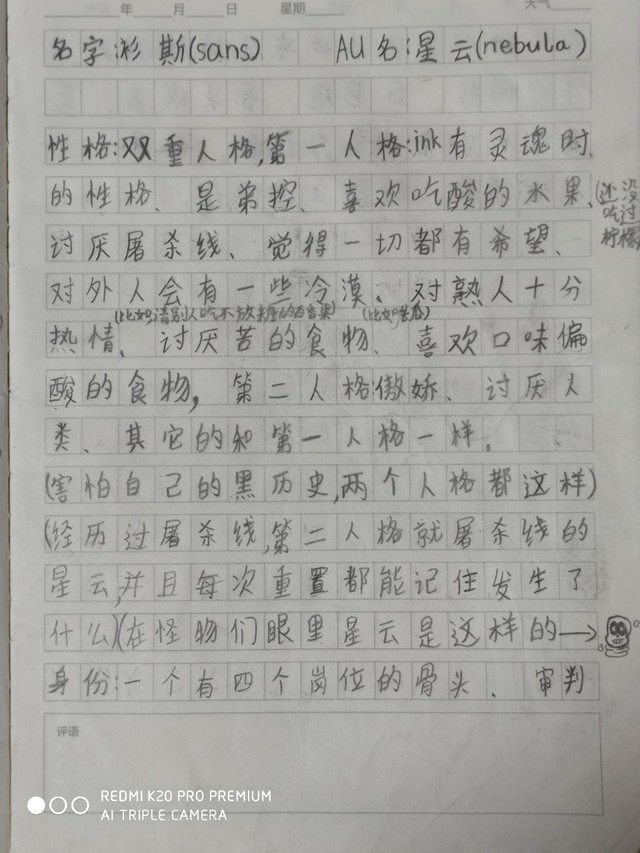 年 月 日 星期 天气
名字:衫斯(sans) AU名:星云(nebula)
性格:双重人格,第一人格:ink有灵魂时
的性格、是弟控、喜欢吃酸的水果、(还没吃过柠檬)
讨厌屠杀线、觉得一切都有希望、
对外人会有一些冷漠、对熟人十分
(比如请别人吃不放糖的百香果) (比如苦瓜)
热情、讨厌苦的食物、喜欢口味偏
酸的食物,第二人格:傲娇、讨厌人
类、其它的和第一人格一样。
(害怕自己的黑历史,两个人格都这样)
(经历过屠杀线,第二人格就屠杀线的
星云,并且每次重置都能记住发生了
什么)(在怪物们眼里星云是这样的→
身份:一个有四个岗位的骨头、审判
评语
REDMI K20 PRO PREMIUM
AI TRIPLE CAMERA